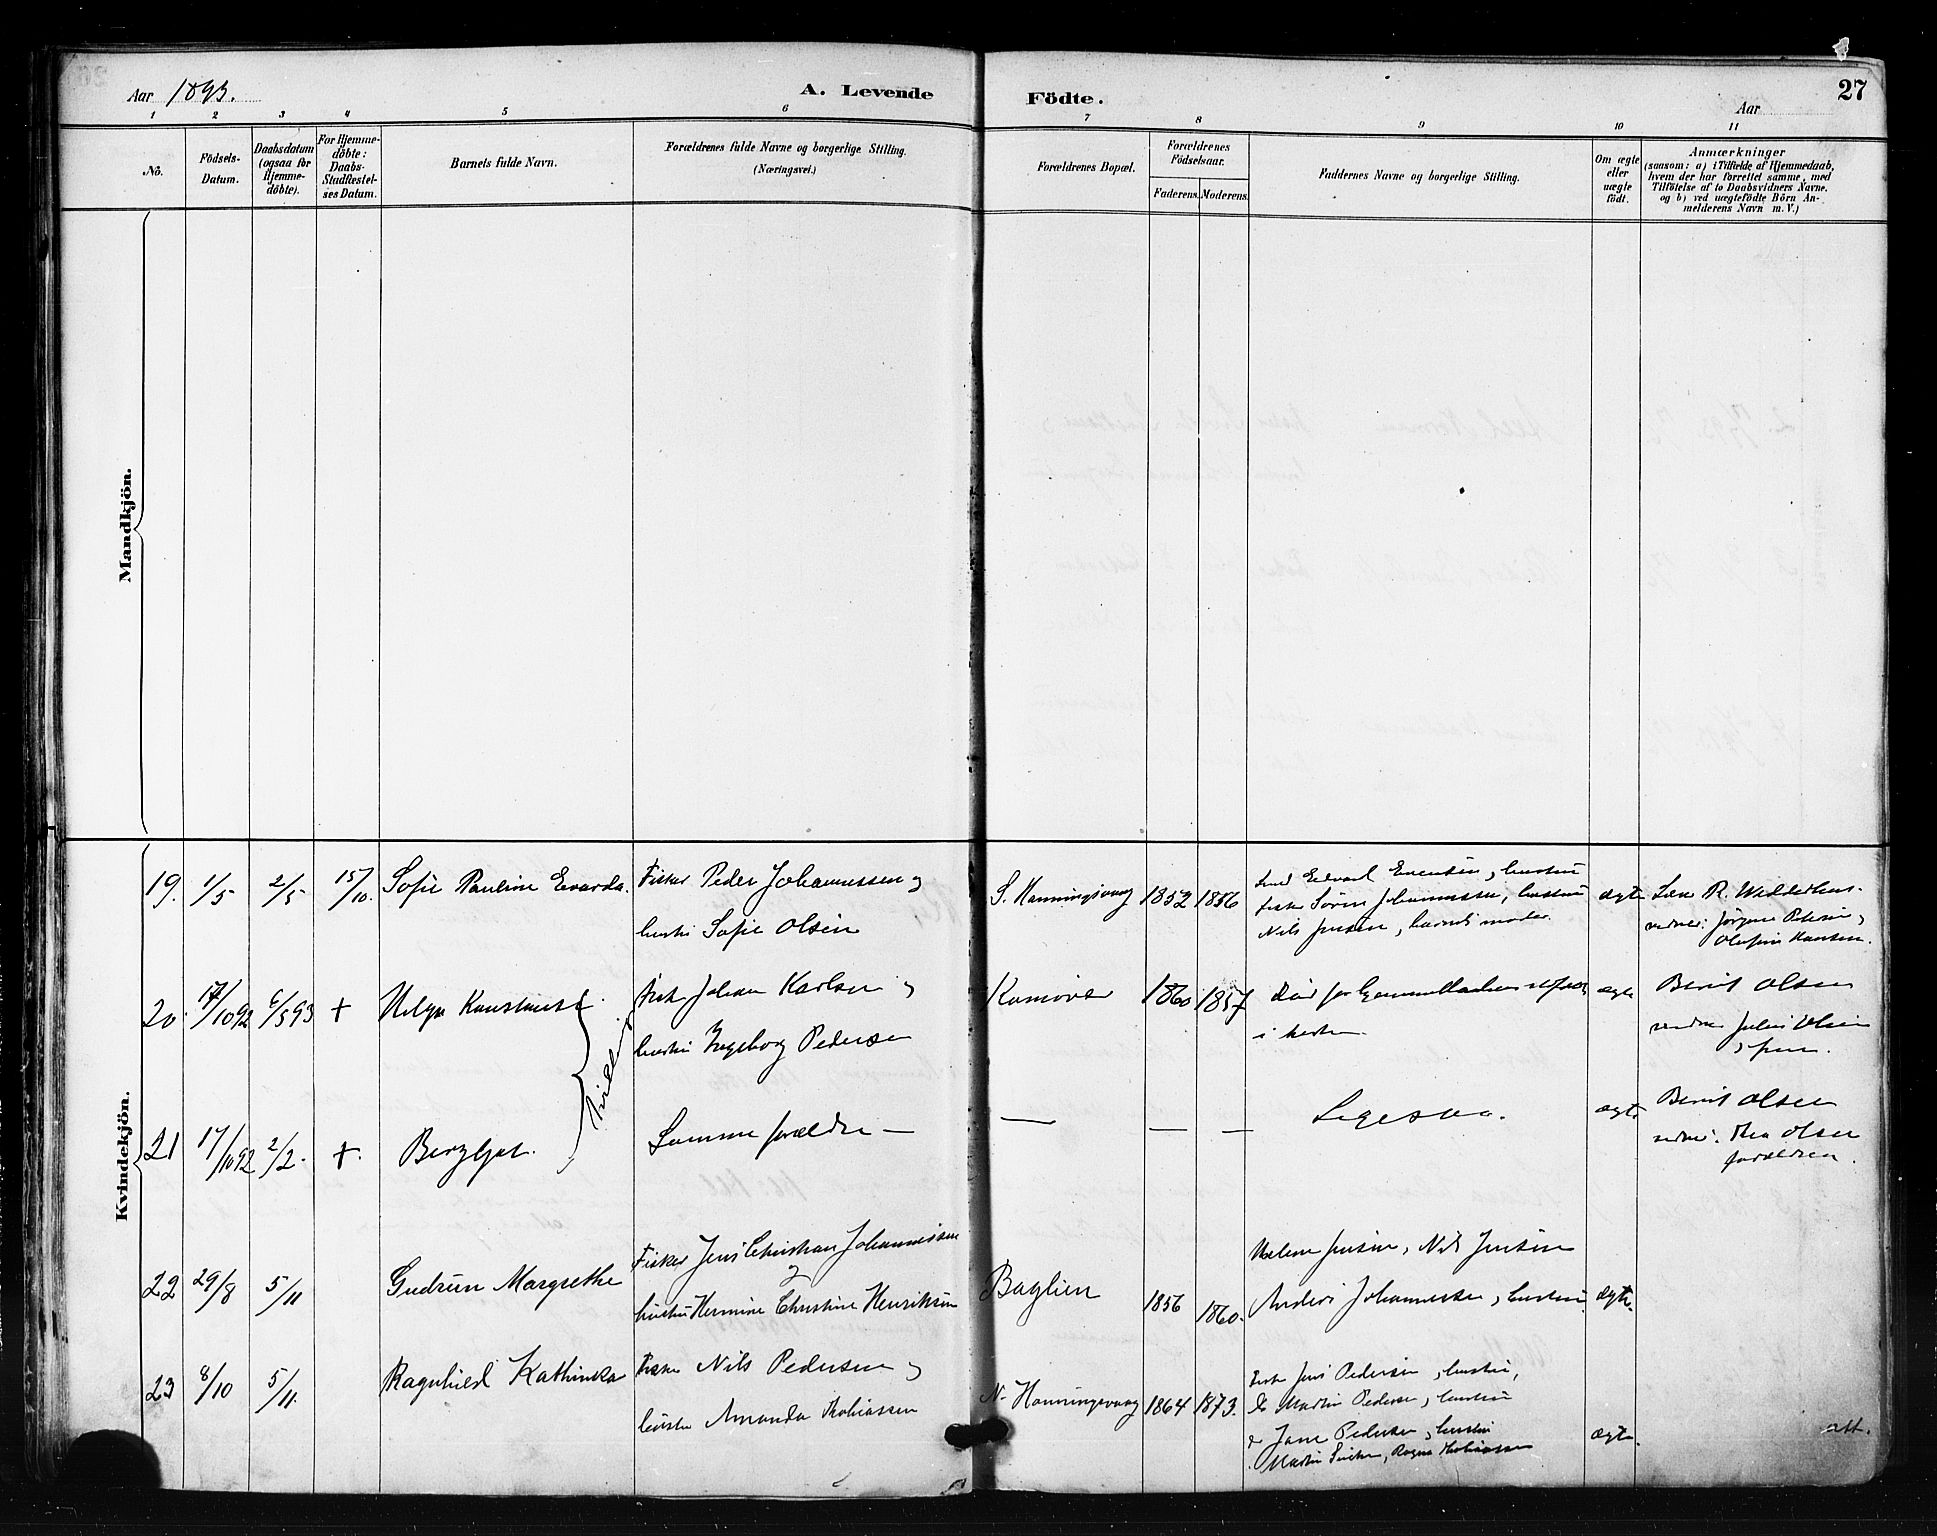 27
Aar 1893.
A. Levende
Födte.
Aar
1 2 3 4 5 6 7 8 9 10 11
No.
Födsels-
Datum.
Daabsdatum
(ogsaa for
Hjemme-
döbte).
For Hjemme-
döbte:
Daabs-
Stadfæstel-
ses Datum.
Barnets fulde Navn.
Forældrenes fulde Navne og borgerlige Stilling.
(Næringsvei.)
Forældrenes Bopæl.
Forældrenes
Födselsaar.
Faderens. Moderens.
Faddernes Navne og borgerlige Stilling.
Om ægte
eller
uægte
födt.
Anmærkninger
(saasom: a) i Tilfælde af Hjemmedaab,
hvem der har forrettet samme, med
Tilföielse af to Daabsvidners Navne.
og b) ved uægtefödte Börn An-
melderens Navn m. V.)
Mandkjön.
Kvindekjön.
19. 1/5 2/5 15/10. Sofie Pauline Evarda.
Fisker Peder Johannessen og
hustru Sofie Olsen
S. Honningsvaag 1852 1856
Edvard Evensen, hustru
fisker Sören Johannessen, hustru
Nils Jensen, barnets moder.
ægte
R. Wetterhus.
vidner: Jörgine Petersen,
Hansen.
20. 17/10 92 6/5 93 +
Helga
Johan Karlsen og
hustru Ingeborg Pedersen
Kamöver 1860 1857
i kirken.
ægte
Berit Olsen
Olsen
21 17/10 92 2/2. + Bergljot.
Samme forældre —
— — —
Ligesaa.
ægte
Berit Olsen
vidner: Olsen
forældren.
22 29/8 5/11 Gudrun Margrethe
Fisker Jens Christian Johannessen
og
hustru Hermine Christine Henriksen
Baglien 1856 1860.
Helene Jensen, Nils Jensen
Anders Johannessen, hustru
ægte.
23 8/10 5/11. Ragnhild Kathinka
Fisker Nils Pedersen og
hustru Amanda Tobiassen
N. Honningsvaag 1864 1873.
Fisker Jens Pedersen, hustru,
Do Martin Pedersen, hustru
Jane Pedersen, hustru
Martin, Ragna Tobiassen
ægte.